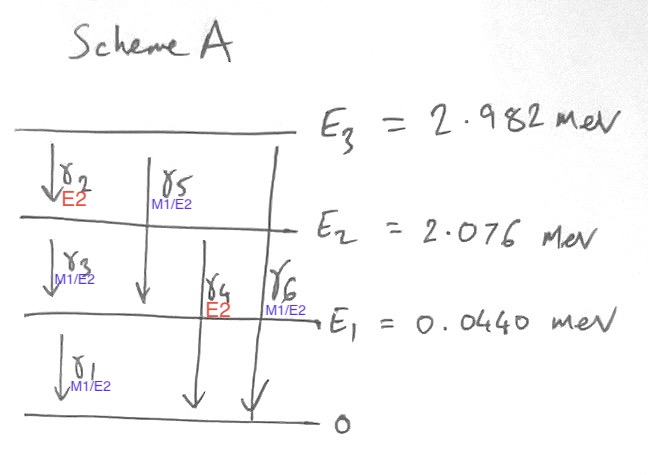 Scheme A
E3 = 2.982 MeV
γ2
E2
γ5
M1/E2
E2 = 2.076 MeV
γ3
M1/E2
γ4
E2
γ6
M1/E2
E1 = 0.0440 MeV
γ1
M1/E2
0